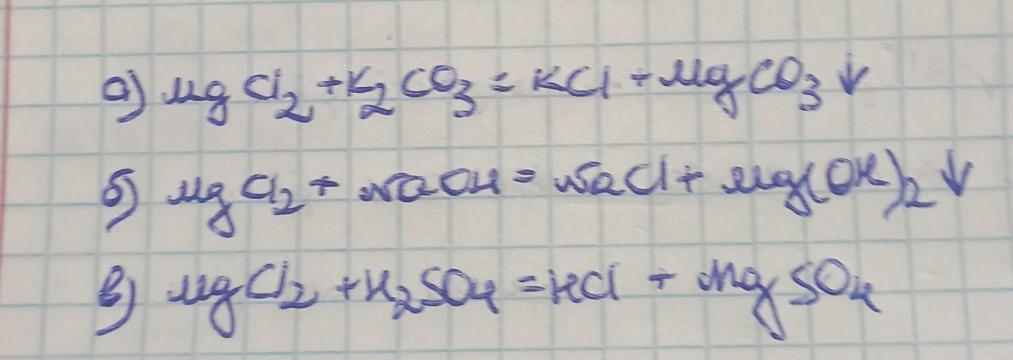 а) MgCl₂ + K₂CO₃ = KCl + MgCO₃ ↓
б) MgCl₂ + NaOH = NaCl + Mg(OH)₂ ↓
в) MgCl₂ + H₂SO₄ = HCl + MgSO₄